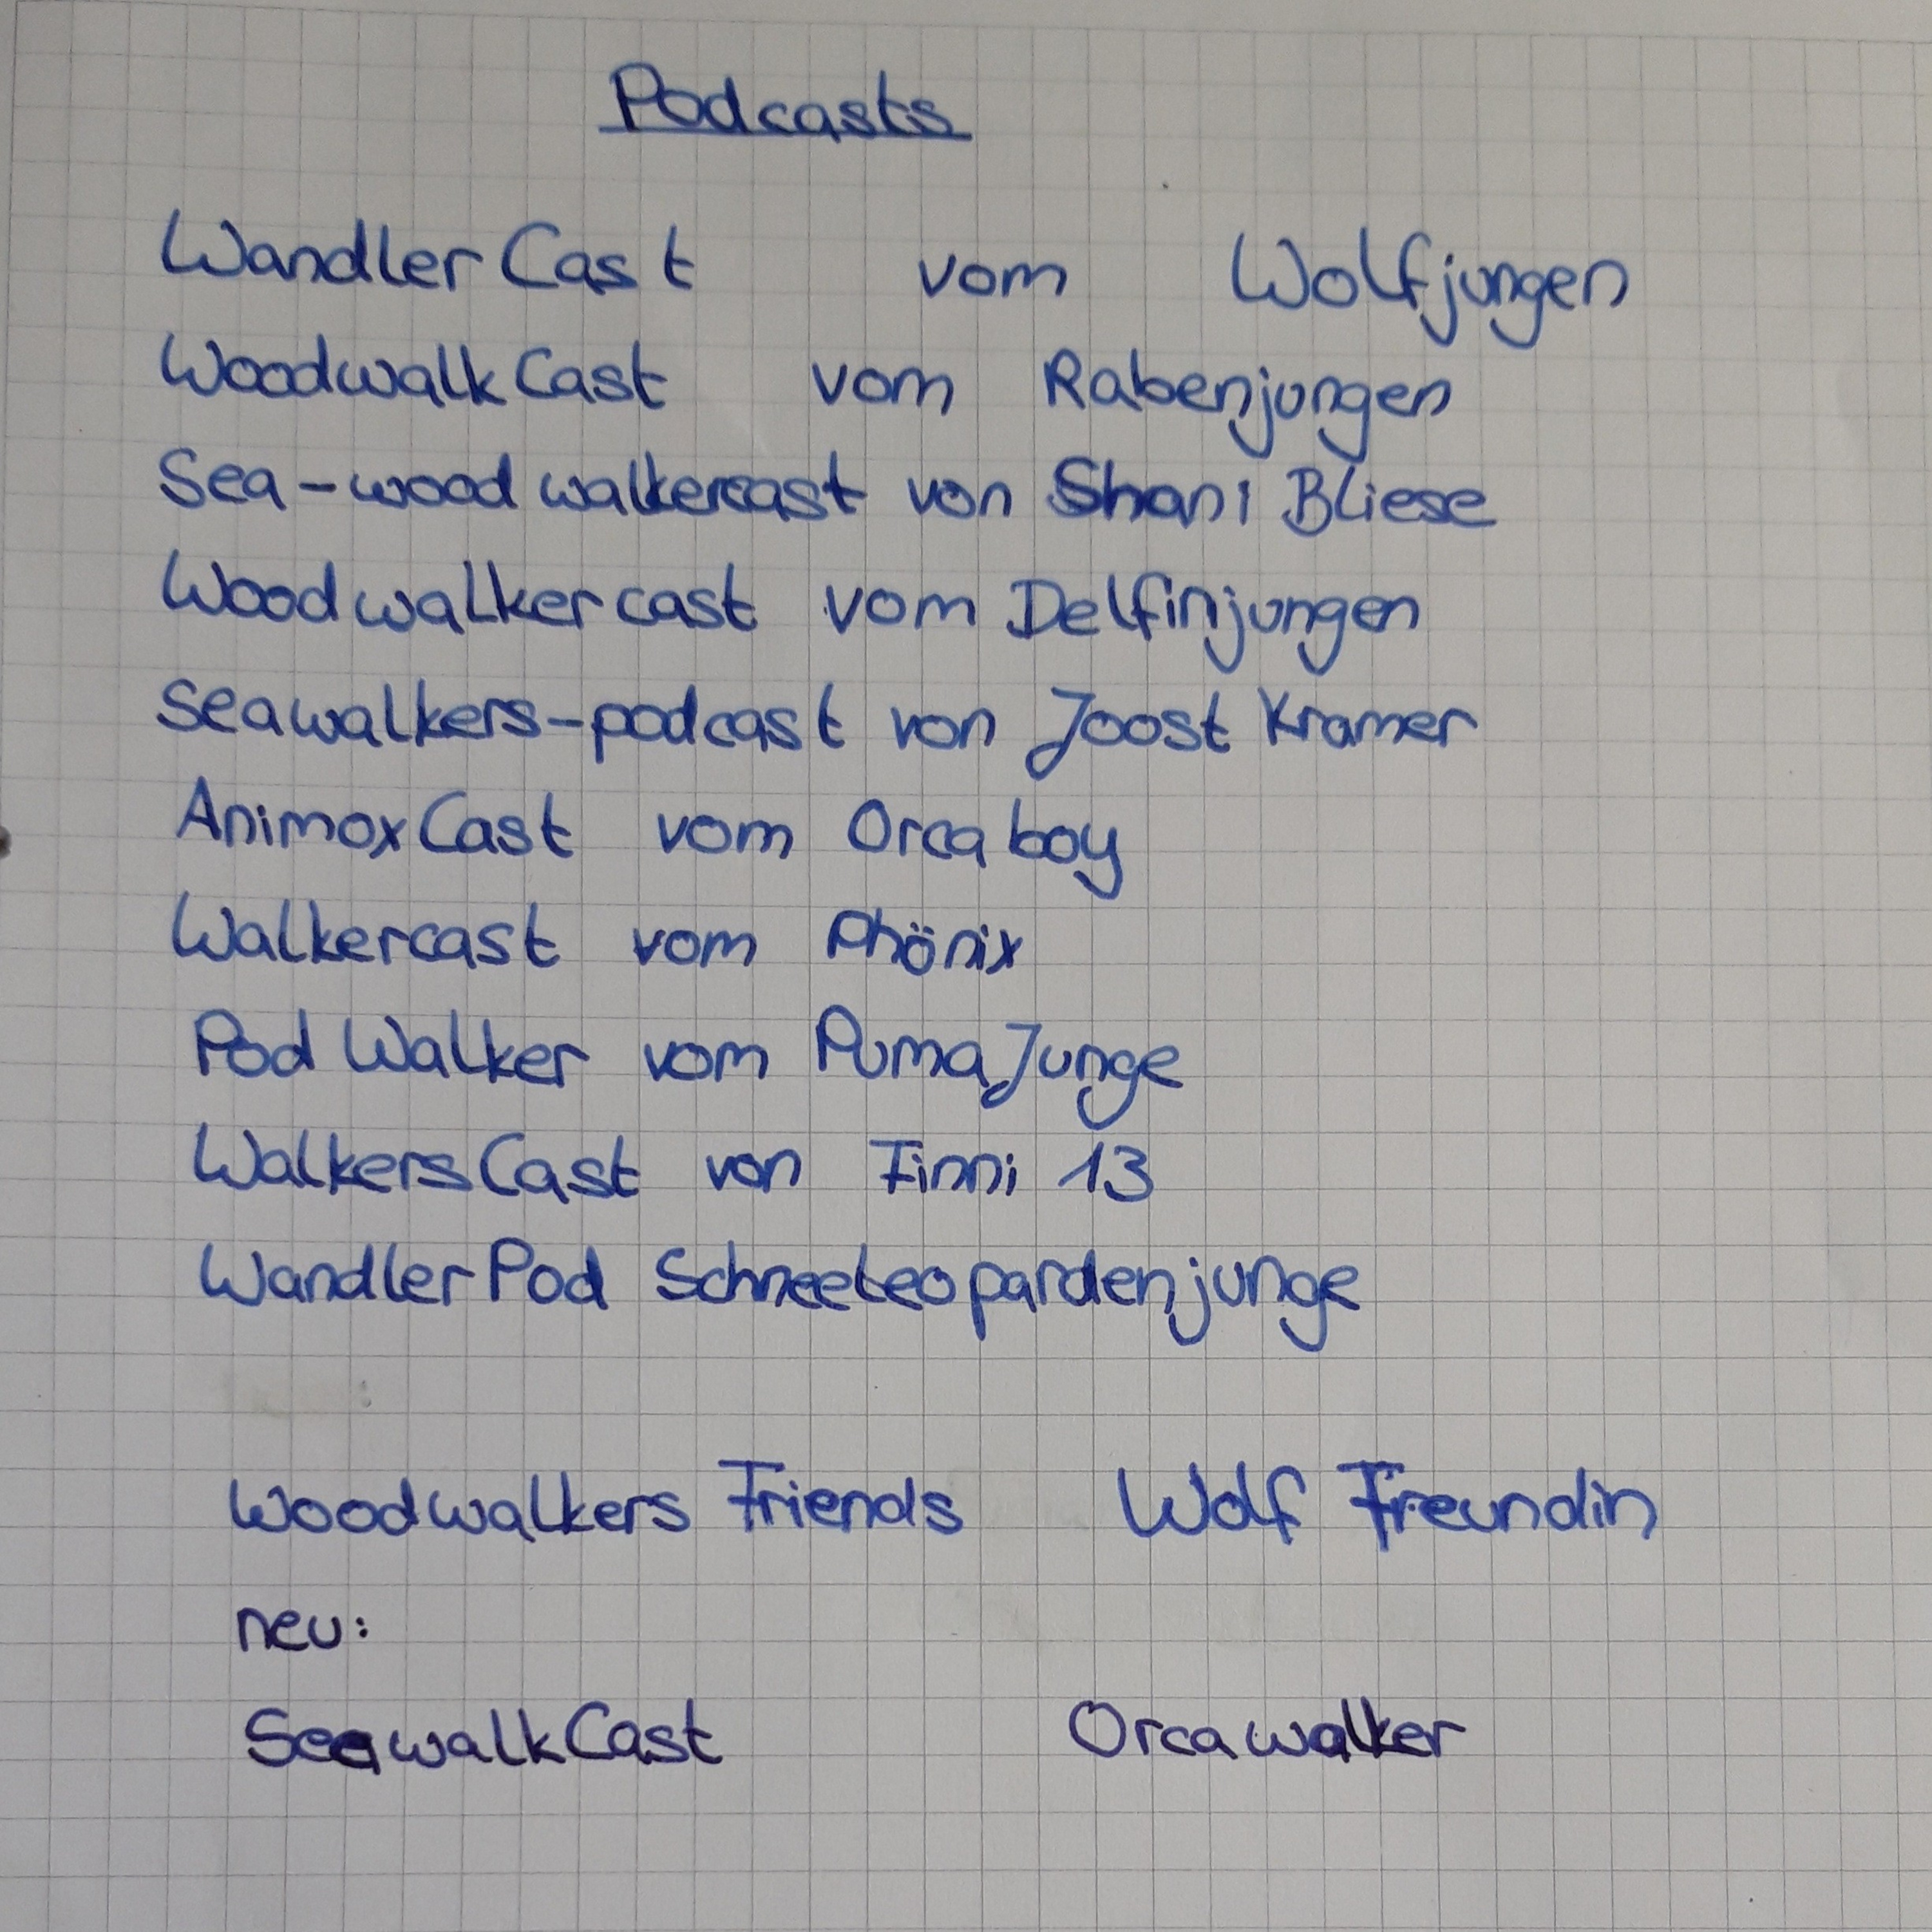 Podcasts
WandlerCast vom Wolfjungen
WoodwalkCast vom Rabenjungen
Sea-woodwalkercast von Shani Bliese
Woodwalkercast vom Delfinjungen
seawalkers-podcast von Joost Kramer
AnimoxCast vom Orcaboy
Walkercast vom Phönix
PodWalker vom PumaJunge
WalkersCast von Finni 13
WandlerPod Schneeleopardenjunge
Woodwalkers Friends Wolf Freundin
neu:
SeawalkCast Orcawalker